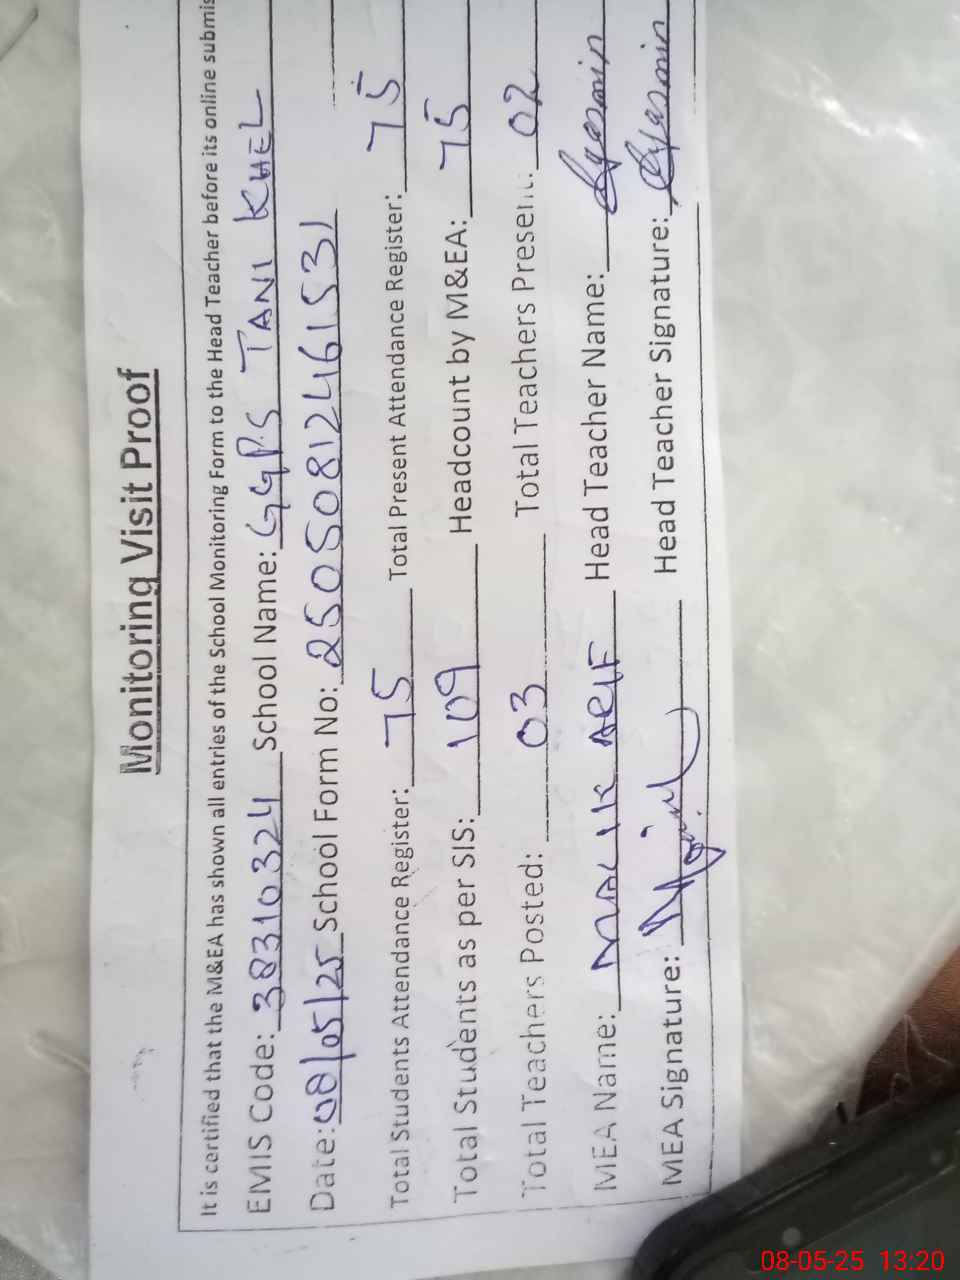 Monitoring Visit Proof
It is certified that the M&EA has shown all entries of the School Monitoring Form to the Head Teacher before its online submis
EMIS Code: 38310324 School Name: GGPS TANI KHEL
Date: 08/05/25 School Form No: 250508124616531
Total Students Attendance Register: 75 Total Present Attendance Register: 75
Total Students as per SIS: 109 Headcount by M&EA: 75
Total Teachers Posted: 03 Total Teachers Present: 02
MEA Name: MALIK ARIF Head Teacher Name: Yasmin
MEA Signature: Head Teacher Signature: Yasmin
08-05-25 13:20